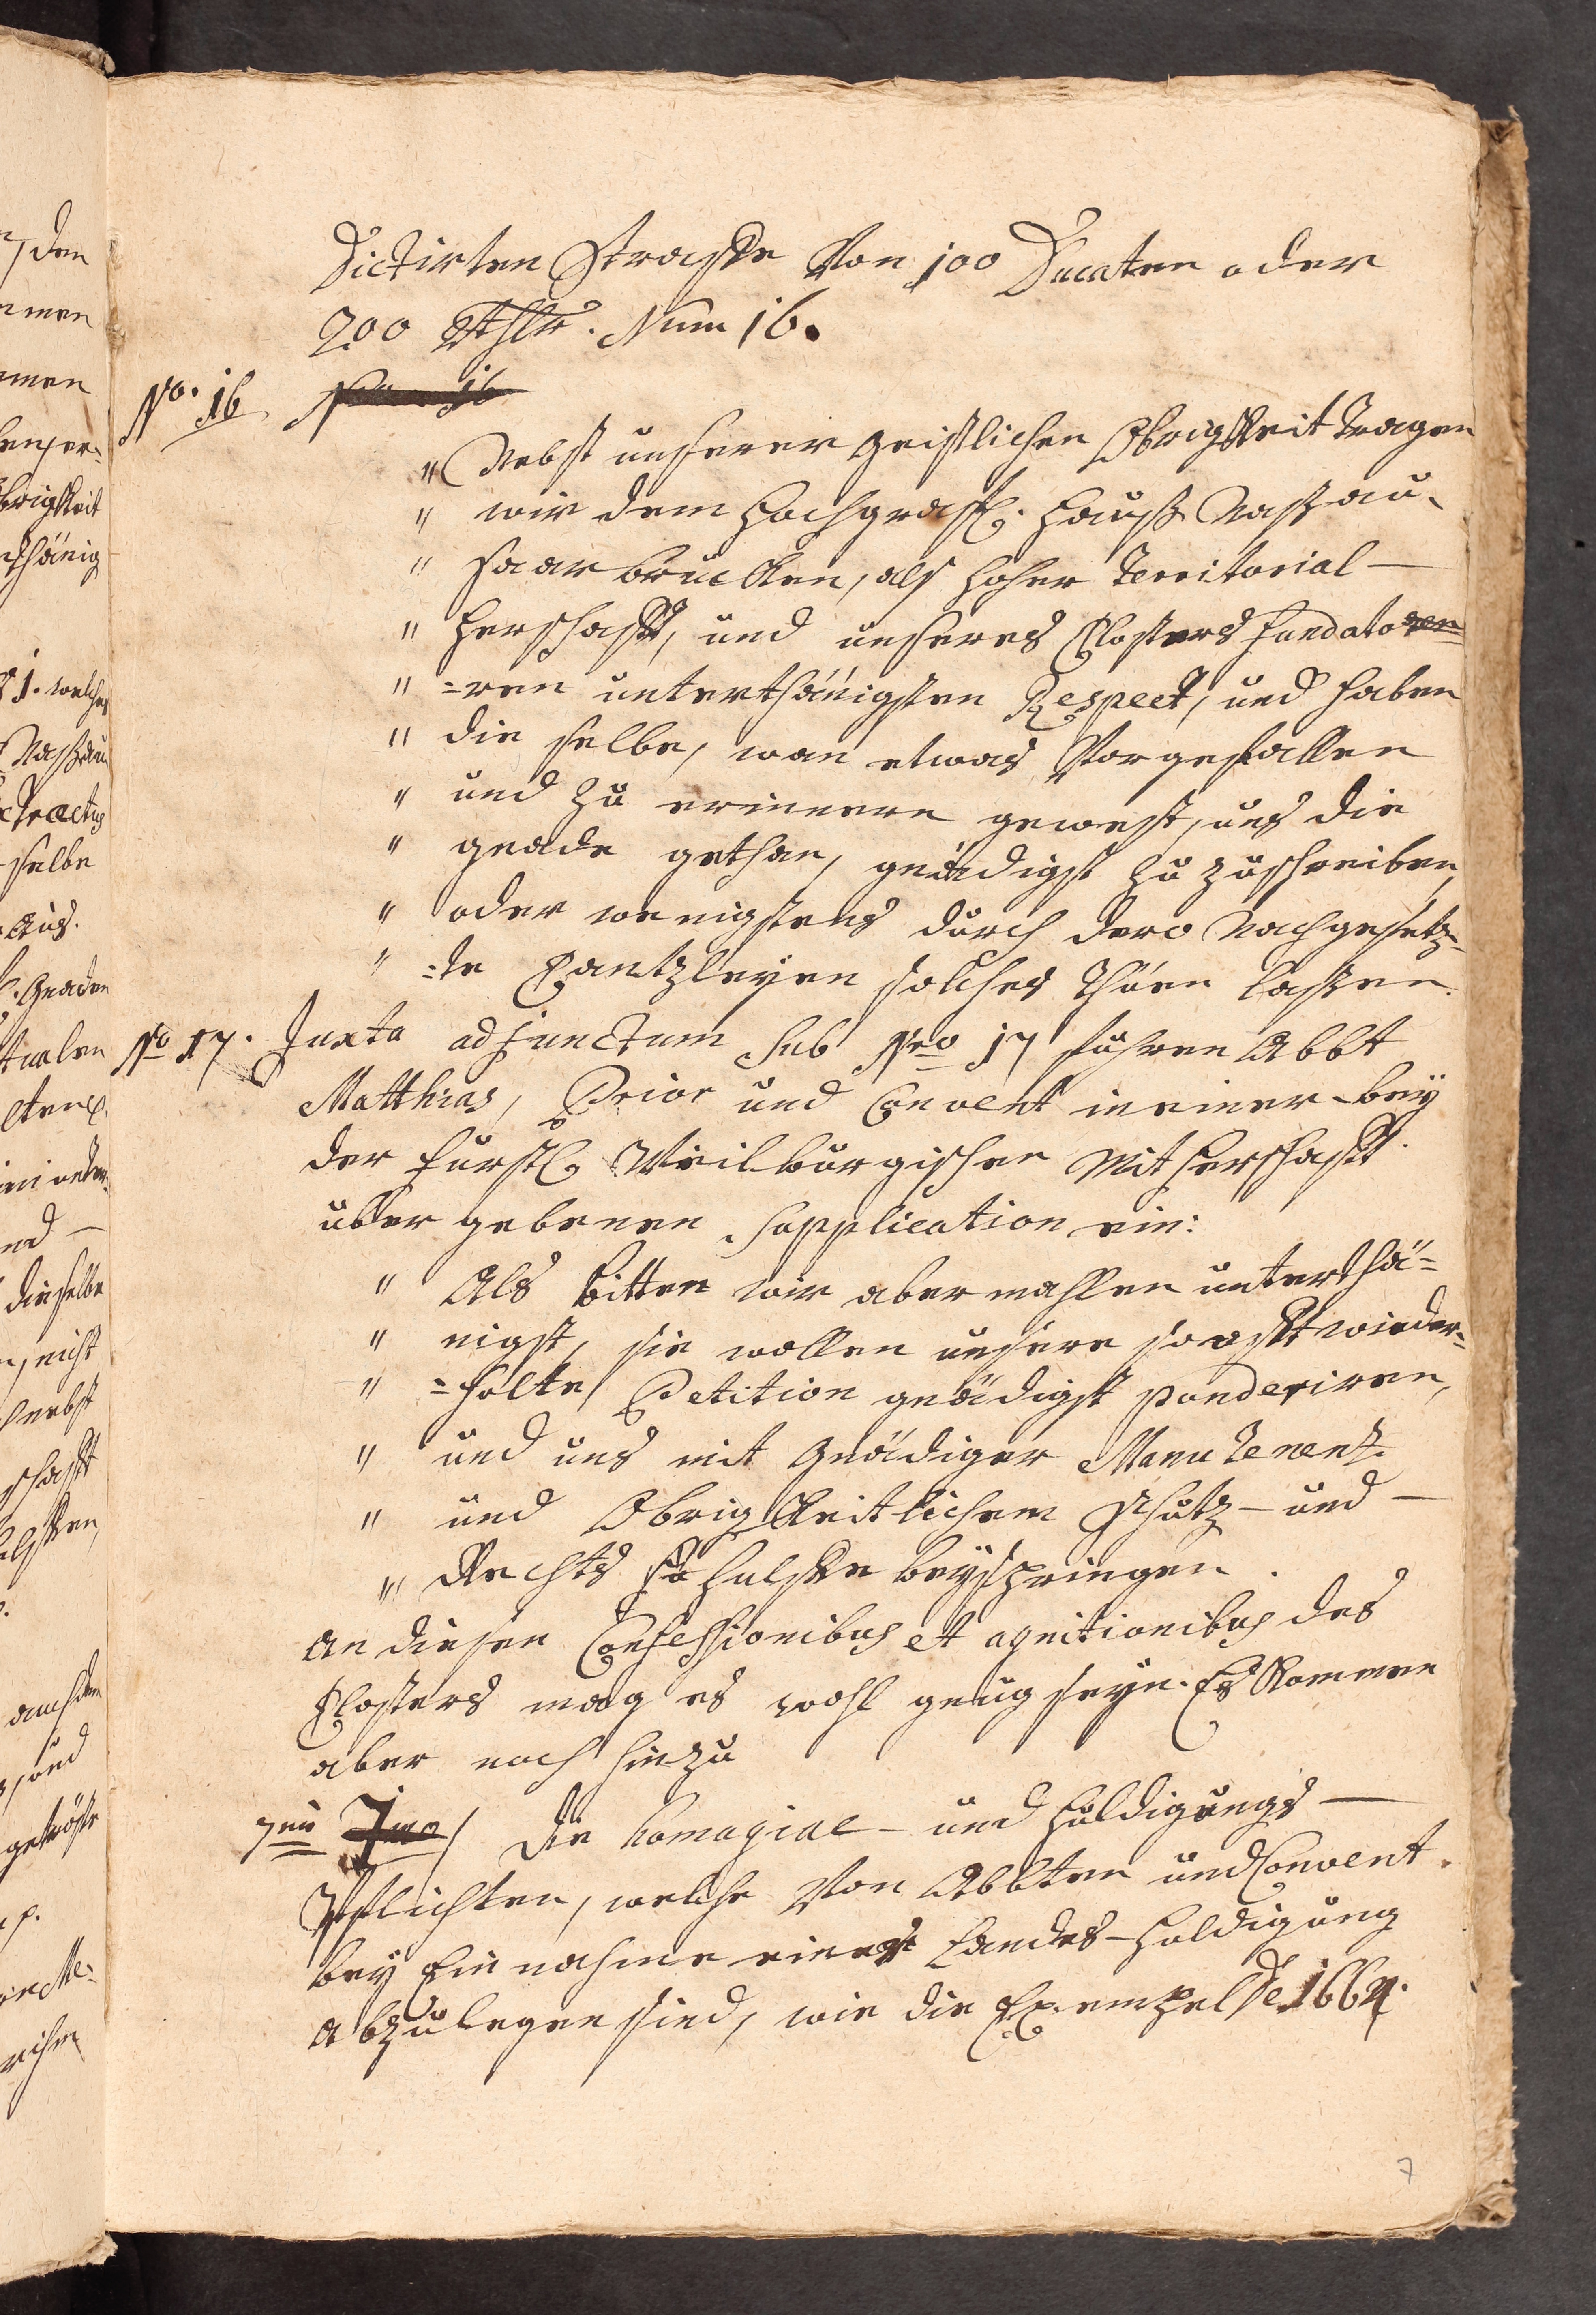 Dictirten Straffe Von 100 Ducaten oder
200 Rthlr. Num 16.
No. 16
" Nebst unserer geistlichen Obrigkeit tragen
" wir dem Hochgräfl. Hauß Naßau-
" Saarbrücken, als hoher Territorial-
" Herschafft, und unseres Closters Fundato
" =ren unterthänigsten Respect, und haben
" die selbe, wan etwas Vorgefallen
" und zu erinnern gewest, uns die
" gnade gethan, gnädigst zu zuschreiben,
" oder wenigstens durch dero Nachgesetz-
" =te Cantzleyen solches thuen laßen.
No 17. Juxta adjunctum sub Nro 17 führen Abbt
Matthias, Prior und Convent in einer bey
der Fürstl. Weilburgischen Mitherschafft
übergebenen Supplication ein:
" Als bitten wir abermahlen unterthä-
" nigst, sie wollen unsere so offt wieder-
" =holte Petition gnädigst ponderiren,
" und uns mit Gnädiger Manutenenz
" und Obrigkeitlichem Schutz- und -
" Rechts hülffe beyspringen.
An diesen Confessionibus et agnitionibus des
Closters mag es wohl gnug seyn. Es kommen
aber noch hinzu
7mo / die Homagial- und Huldigungs-
Pflichten, welche Von Abbten und Convent
bey Einnahme einer Landes-Huldigung
abzulegen sind, wie die Exempel de 1664.
7